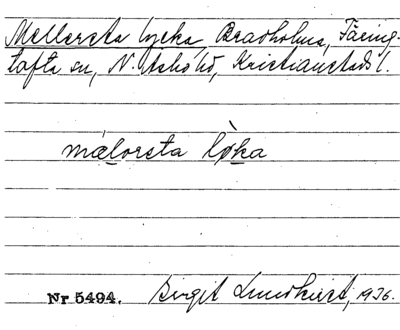 Mellersta lycka Bradholma, Färing-
tofta sn, N. Åsbo hd, Kristianstads l.
mælorsta lỳka
Nr 5494. Birgit Lundkvist, 1936.